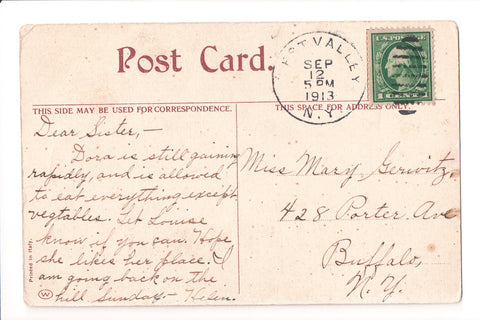 Post Card.
WEST VALLEY
SEP
12
5 PM
1913
N.Y.
U.S. POSTAGE
1 CENT 1
THIS SIDE MAY BE USED FOR CORRESPONDENCE.
THIS SPACE FOR ADDRESS ONLY.
Dear Sister,-
Dora is still gaining
rapidly, and is allowed
to eat everything except
vegtables. Let Louise
know if you can. Hope
she likes her place. I
am going back on the
hill Sunday - Helen.
Miss Mary Gerwitz,
428 Porter Ave
Buffalo,
N.Y.
Printed in Italy.
W